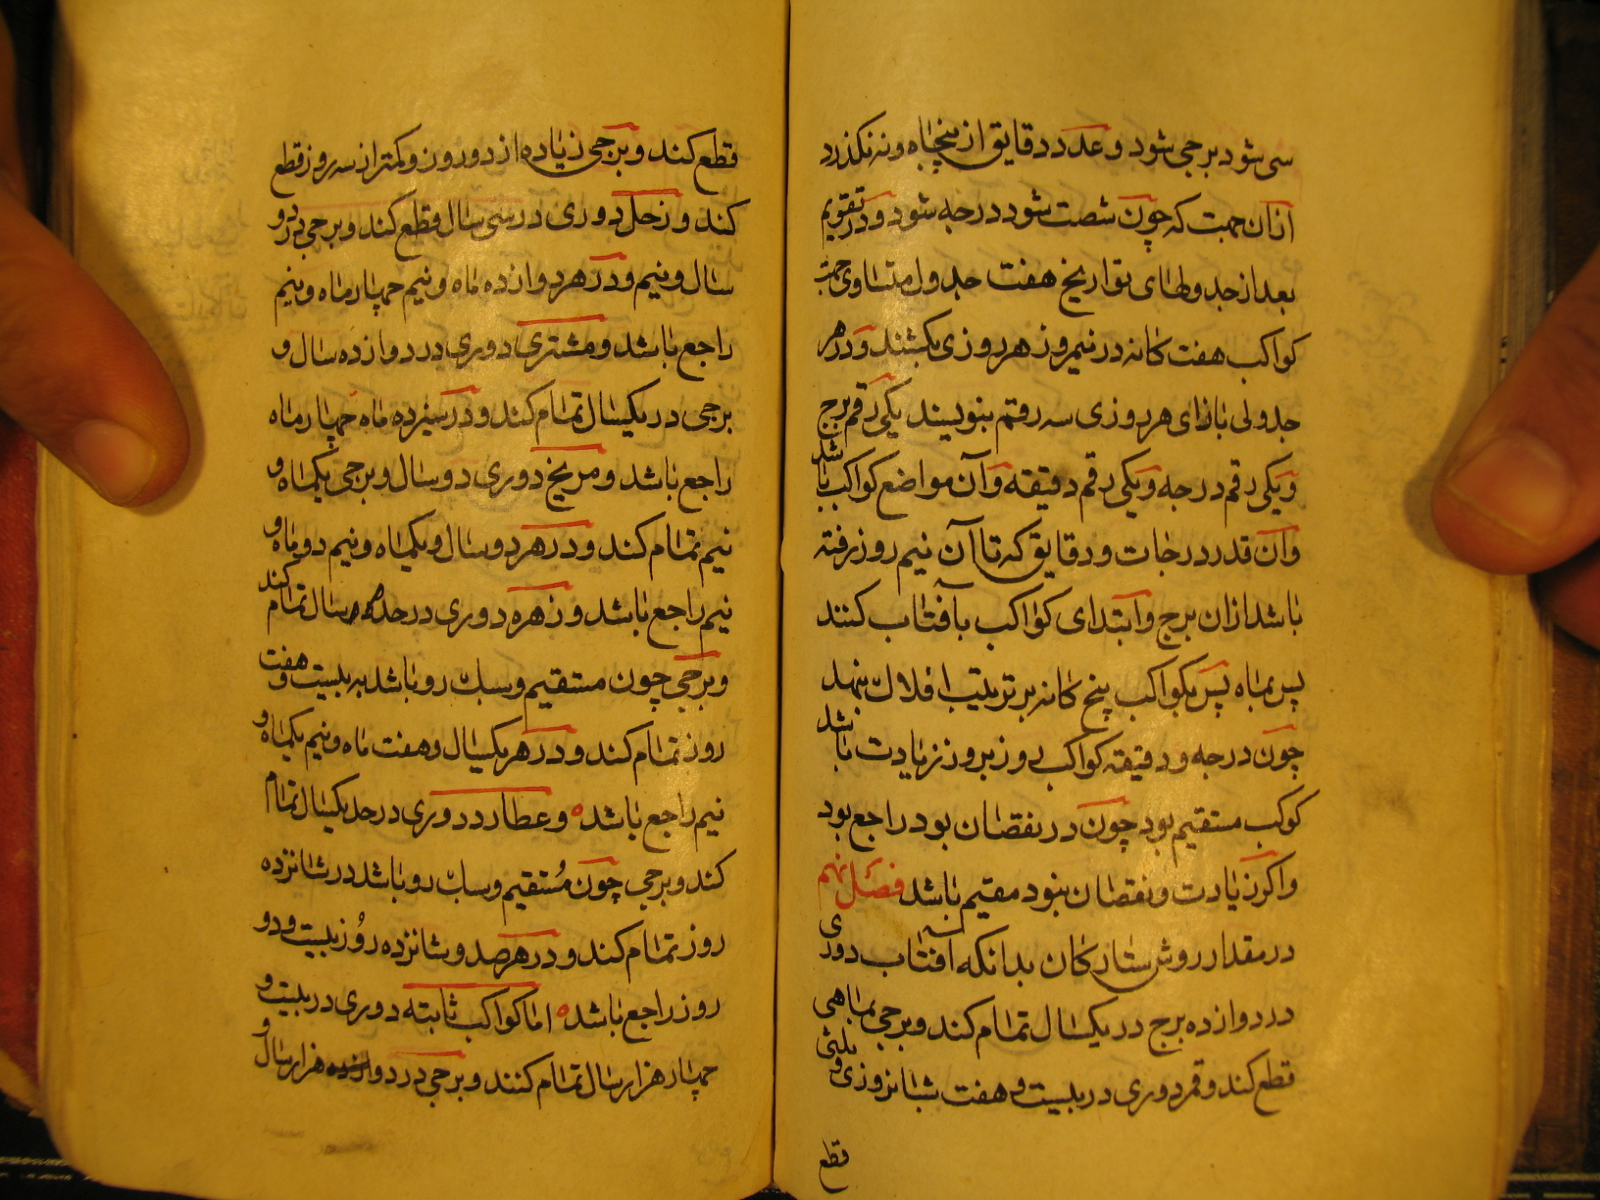 سی شود برجی شود و عدد دقایق از پنجاه و نه نکذرد
ازان جهت که چون شصت شود درجه شود و در تقویم
بعد از جدولهای تواریخ هفت جدول متساوی جهت
کواکب هفت کانه در نیم روز هر روزی بکشند و در هر
جدولی بازای هر روزی سه رقم بنویسند یکی رقم برج
و یکی رقم درجه و یکی رقم دقیقه و آن مواضع کواکب باشد
و آن قدر درجات و دقایق که تا آن نیم روز رفته
باشد ازان برج و ابتدای کواکب بآفتاب کنند
پس بماه پس بکواکب پنج کانه بر ترتیب افلاک بنهد
چون درجه و دقیقه کواکب روز بروز زیادت باشد
کوکب مستقیم بود چون در نقصان بود راجع بود
و اکر زیادت و نقصان نبود مقیم باشد فصل نهم
در مقدار روش ستارکان بدانکه آفتاب دوری
در دوازده برج در یکسال تمام کند و برجی بماهی
قطع کند و قمر دوری در بیست و هفت شبانروزی و ثلثی
قطع
قطع کند و برجی زیاده از دو روز و کمتر از سه روز قطع
کند و زحل دوری در سی سال قطع کند و برجی در دو
سال و نیم و در هر دوازده ماه و نیم چهار ماه و نیم
راجع باشد و مشتری دوری در دوازده سال و
برجی در یکسال تمام کند و در سیزده ماه چهار ماه
راجع باشد و مریخ دوری دو سال و برجی یکماه و
نیم تمام کند و در هر دو سال و یکماه و نیم دو ماه و
نیم راجع باشد و زهره دوری در حد سال تمام کند
و برجی چون مستقیم و سبک رو باشد به بیست و هفت
روز تمام کند و در هر یکسال و هفت ماه و نیم یکماه و
نیم راجع باشد و عطارد دوری در حد یکسال تمام
کند و برجی چون مستقیم و سبک رو باشد در شانزده
روز تمام کند و در هر صد و شانزده روز بیست و دو
روز راجع باشد اما کواکب ثابته دوری در بیست و
چهار هزار سال تمام کنند و برجی در دو هزار سال و